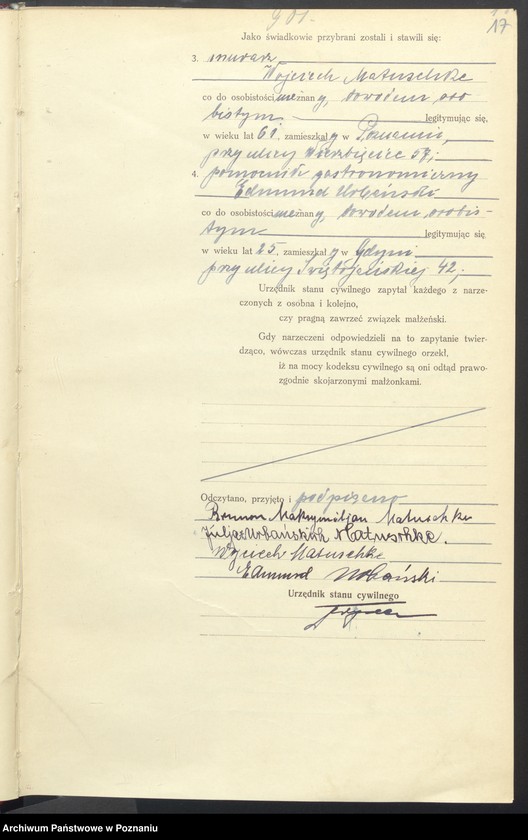 901.
17
Jako świadkowie przybrani zostali i stawili się:
3. murarz
Wojciech Matuschke
co do osobistości nieznany, dowodem oso
bistym legitymując się,
w wieku lat 61. zamieszkały w Poznaniu,
przy ulicy Wierzbięcice 57;
4. pomocnik gastronomiczny
Edmund Urbański
co do osobistości nieznany, dowodem osobis-
tym legitymując się
w wieku lat 25. zamieszkały w Gdyni
przy ulicy Świętojańskiej 42;
Urzędnik stanu cywilnego zapytał każdego z narze-
czonych z osobna i kolejno,
czy pragną zawrzeć związek małżeński.
Gdy narzeczeni odpowiedzieli na to zapytanie twier-
dząco, wówczas urzędnik stanu cywilnego orzekł,
iż na mocy kodeksu cywilnego są oni odtąd prawo-
zgodnie skojarzonymi małżonkami.
Odczytano, przyjęto i podpisano
Brunon Maksymiljan Matuschke
Julja Urbańskich Matuschke.
Wojciech Matuschke
Edmund Urbański
Urzędnik stanu cywilnego
Archiwum Państwowe w Poznaniu